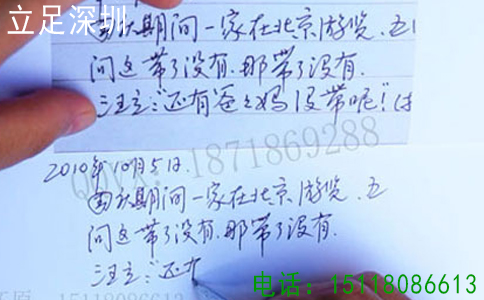 立足深圳
国庆期间一家在北京游览.五
问这带了没有.那带了没有.
汪立:"还有爸爸妈没带呢!"(
QQVX:1871869288
2010年10月5日.
国庆期间一家在北京游览.五
问这带了没有.那带了没有.
汪立:"还
电话:15118086613